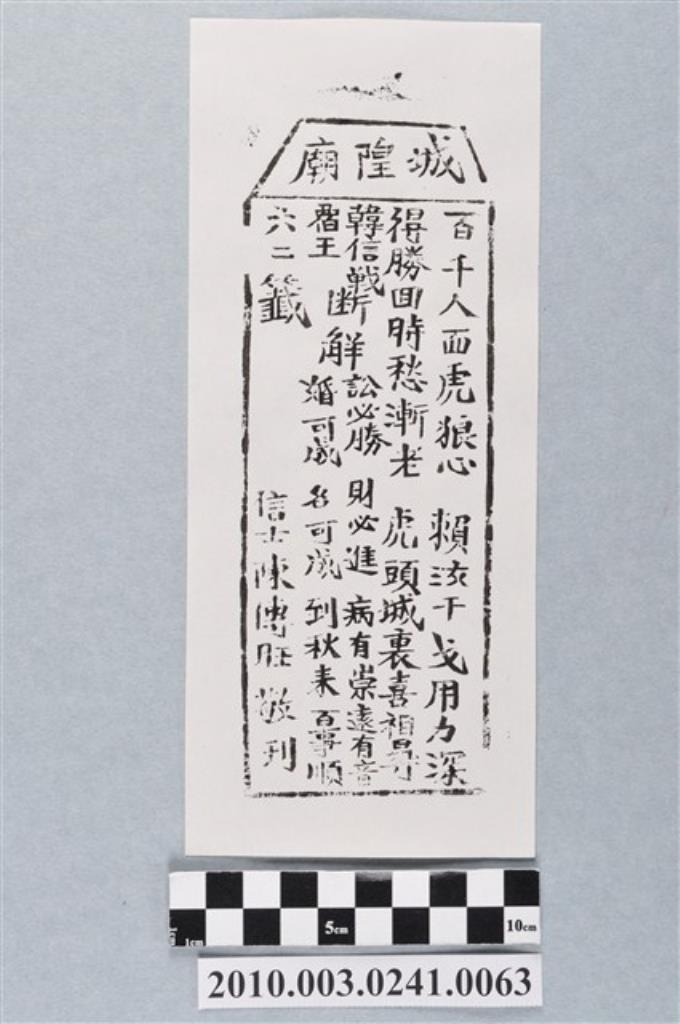 城隍廟
百千人面虎狼心 賴汝干戈用力深
得勝回時愁漸老 虎頭城裏喜相尋
韓信戰霸王
斷解
訟必勝 財必進 病有崇 遠有音
婚可成 名可成 到秋來 百事順
六二籤
信士陳傳旺敬刊
1cm 5cm 10cm
2010.003.0241.0063